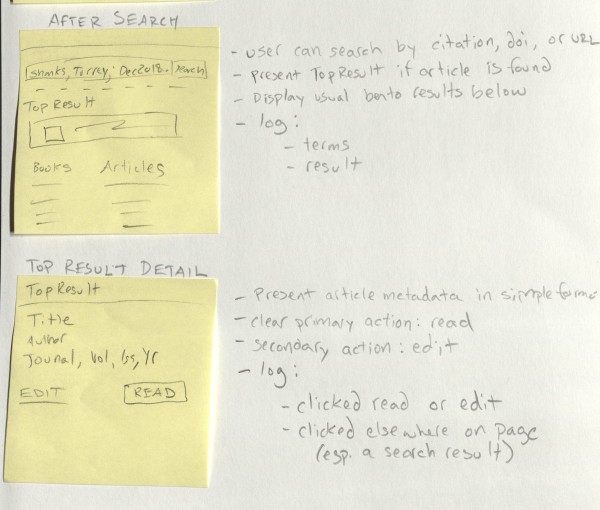 AFTER SEARCH
Shanks, Torrey; Dec 2018. Search
Top Result
Books Articles
- user can search by citation, doi, or URL
- present Top Result if article is found
- Display usual bento results below
- log:
- terms
- result
TOP RESULT DETAIL
Top Result
Title
Author
Journal, Vol, Iss, Yr
EDIT READ
- Present article metadata in simple format
- clear primary action: read
- secondary action: edit
- log:
- clicked read or edit
- clicked elsewhere on page
(esp. a search result)